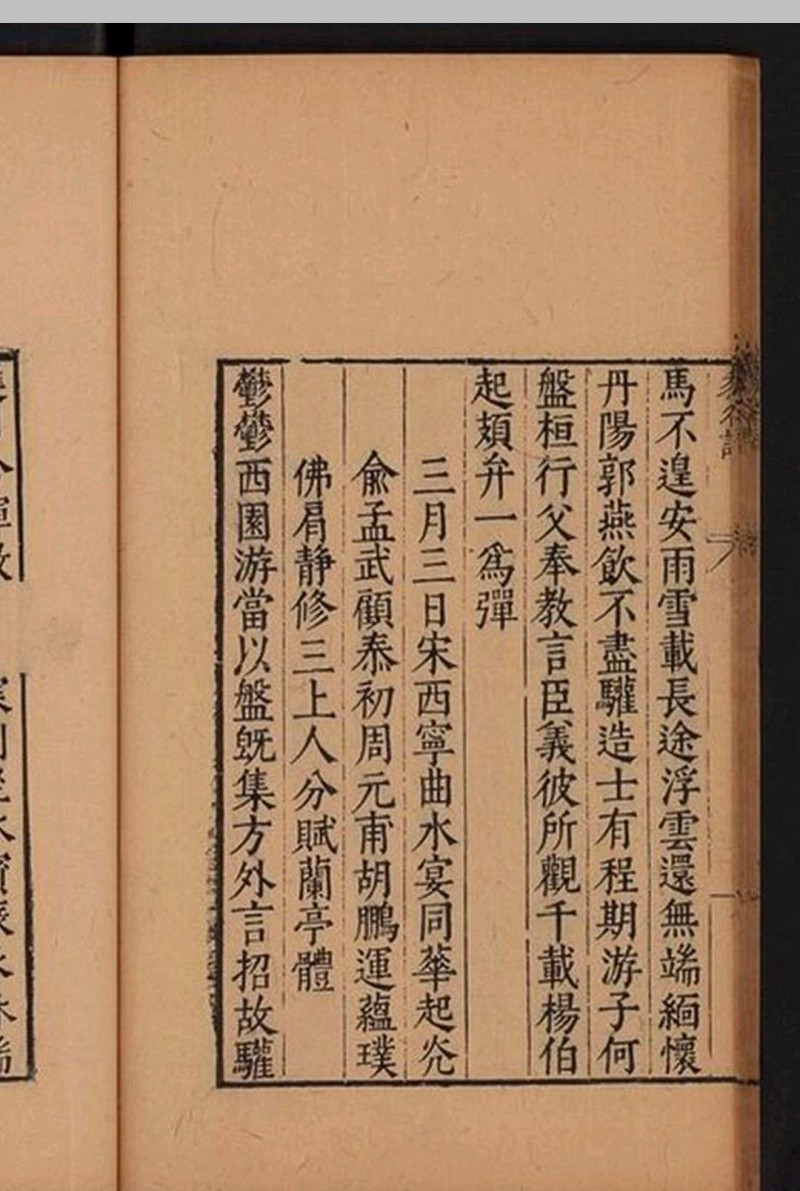 馬不遑安雨雪載長途浮雲還無端緬懷
丹陽郭燕飲不盡驩造士有程期游子何
盤桓行父奉教言臣義彼所觀千載楊伯
起頍弁一爲彈
三月三日宋西寧曲水宴同華起光
俞孟武顧泰初周元甫胡鵬運蘊璞
佛眉静修三上人分賦蘭亭體
鬱鬱西園游當以盤旣集方外言招故驩